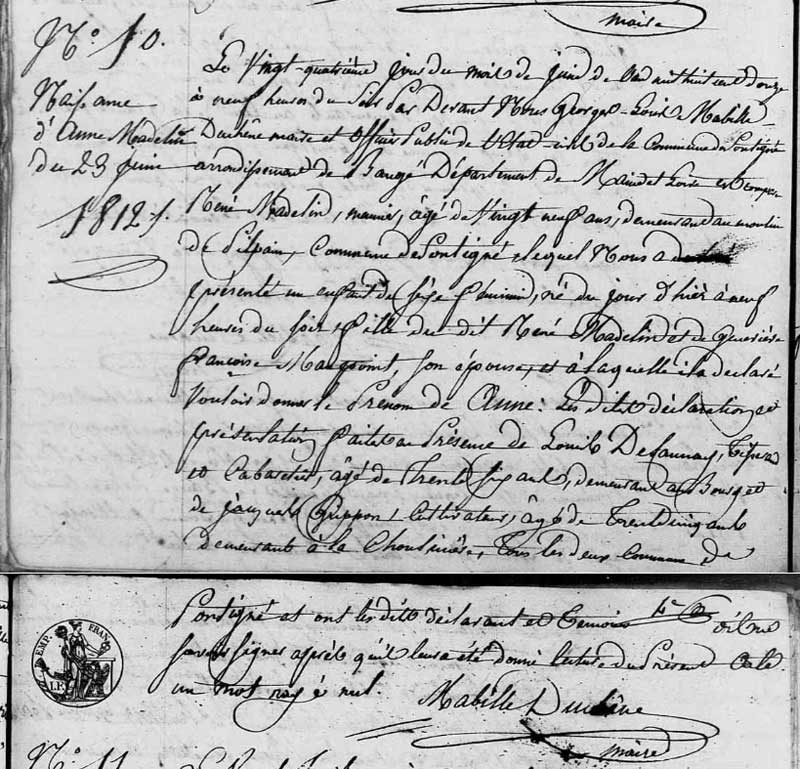 maire
N.o 10.
Naissance
d'Anne Madelin
du 23 Juin
1812 /.
Le Vingt-quatrième jour du mois de Juin de l'an mil huit cent douze
à neuf heures du soir Par Devant Nous Georges-Louis Mabille
Duchêne maire et Officier Public de l'Etat-civil de la Commune de Pontigné
arrondissement de Baugé Département de Maine et Loire est comparu
René Madelin, meunier, âgé de Vingt neuf ans, demeurant au moulin
de commune de Pontigné, lequel Nous a
présenté un enfant de sexe féminin, né du jour d'hier à neuf
heures du soir, fille du dit René Madelin et de
françoise Maupoint, son épouse, et à laquelle il a déclaré
vouloir donner le Prénom de Anne: Les dites déclaration et
présentation faites en Présence de Louis Delaunay,
et Cabaretier, âgé de trente six ans, demeurant au Bourg et
de jacques Grippon, Cultivateur, âgé de ans
demeurant à la Tous les deux Commune de
Pontigné et ont les dits déclarant et Témoins dit ne
savoir signer après qu'il leur a été donné lecture du Présent acte
un mot rayé nul.
Mabille Duchêne
maire
EMP. FRAN
N.o 11